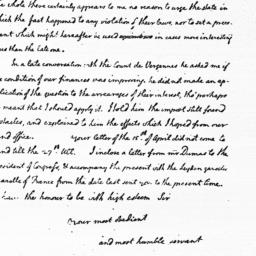 whole there certainly appears to me no reason to urge the state in
which the fact happened to any violation of their laws, nor to set a prece-
dent which might hereafter be used in cases more interesting
us than the late one.
In a late conversation with the Count de Vergennes he asked me if
condition of our finances was improving. he did not make an ap-
plication of the question to the arrearages of their interest, tho' perhaps
meant that I should apply it. I told him the impost still found
obstacles, and explained to him the effects which I hoped from our
land office. your letter of the 15th of April did not come to
hand till the 27th Ult. I inclose a letter from mr Dumas to the
president of Congress, & accompany the present with the Leyden gazette
gazette of France from the date last sent you to the present time.
the honour to be with high esteem Sir
your most obedient
and most humble servant